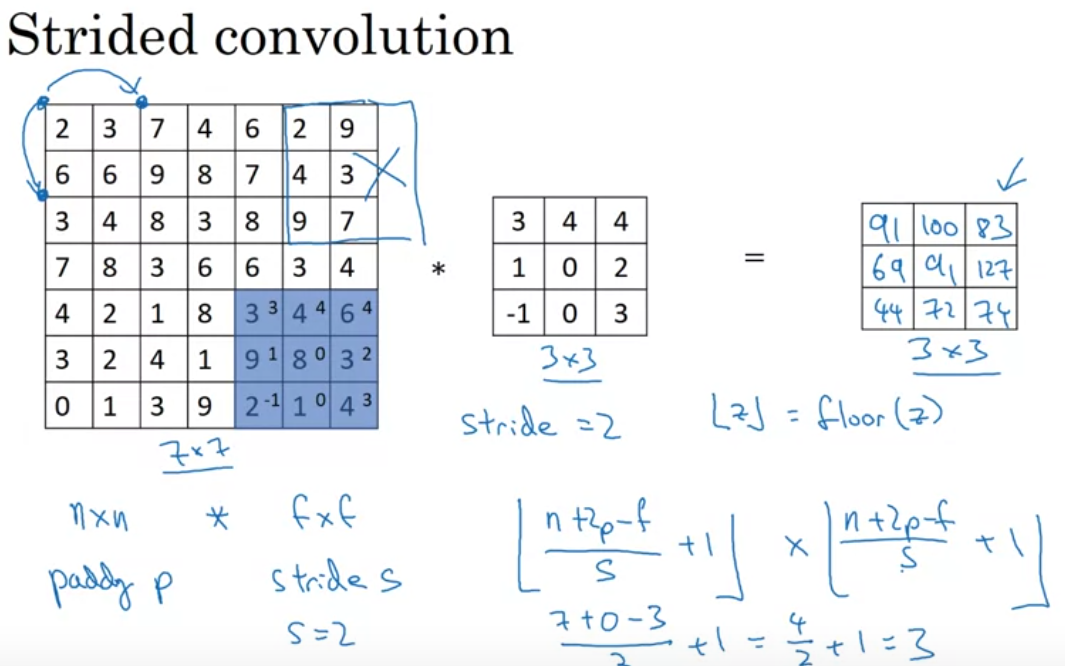 Strided convolution
2 3 7 4 6 2 9
6 6 9 8 7 4 3
3 4 8 3 8 9 7
7 8 3 6 6 3 4
4 2 1 8 3 3 4 4 6 4
3 2 4 1 9 1 8 0 3 2
0 1 3 9 2 -1 1 0 4 3
7x7
*
3 4 4
1 0 2
-1 0 3
3x3
stride = 2
=
91 100 83
69 91 127
44 72 74
3x3
⌊z⌋ = floor(z)
nxn * fxf
padding p stride s
s=2
⌊(n+2p-f)/s + 1⌋ x ⌊(n+2p-f)/s + 1⌋
(7+0-3)/2 + 1 = 4/2 + 1 = 3